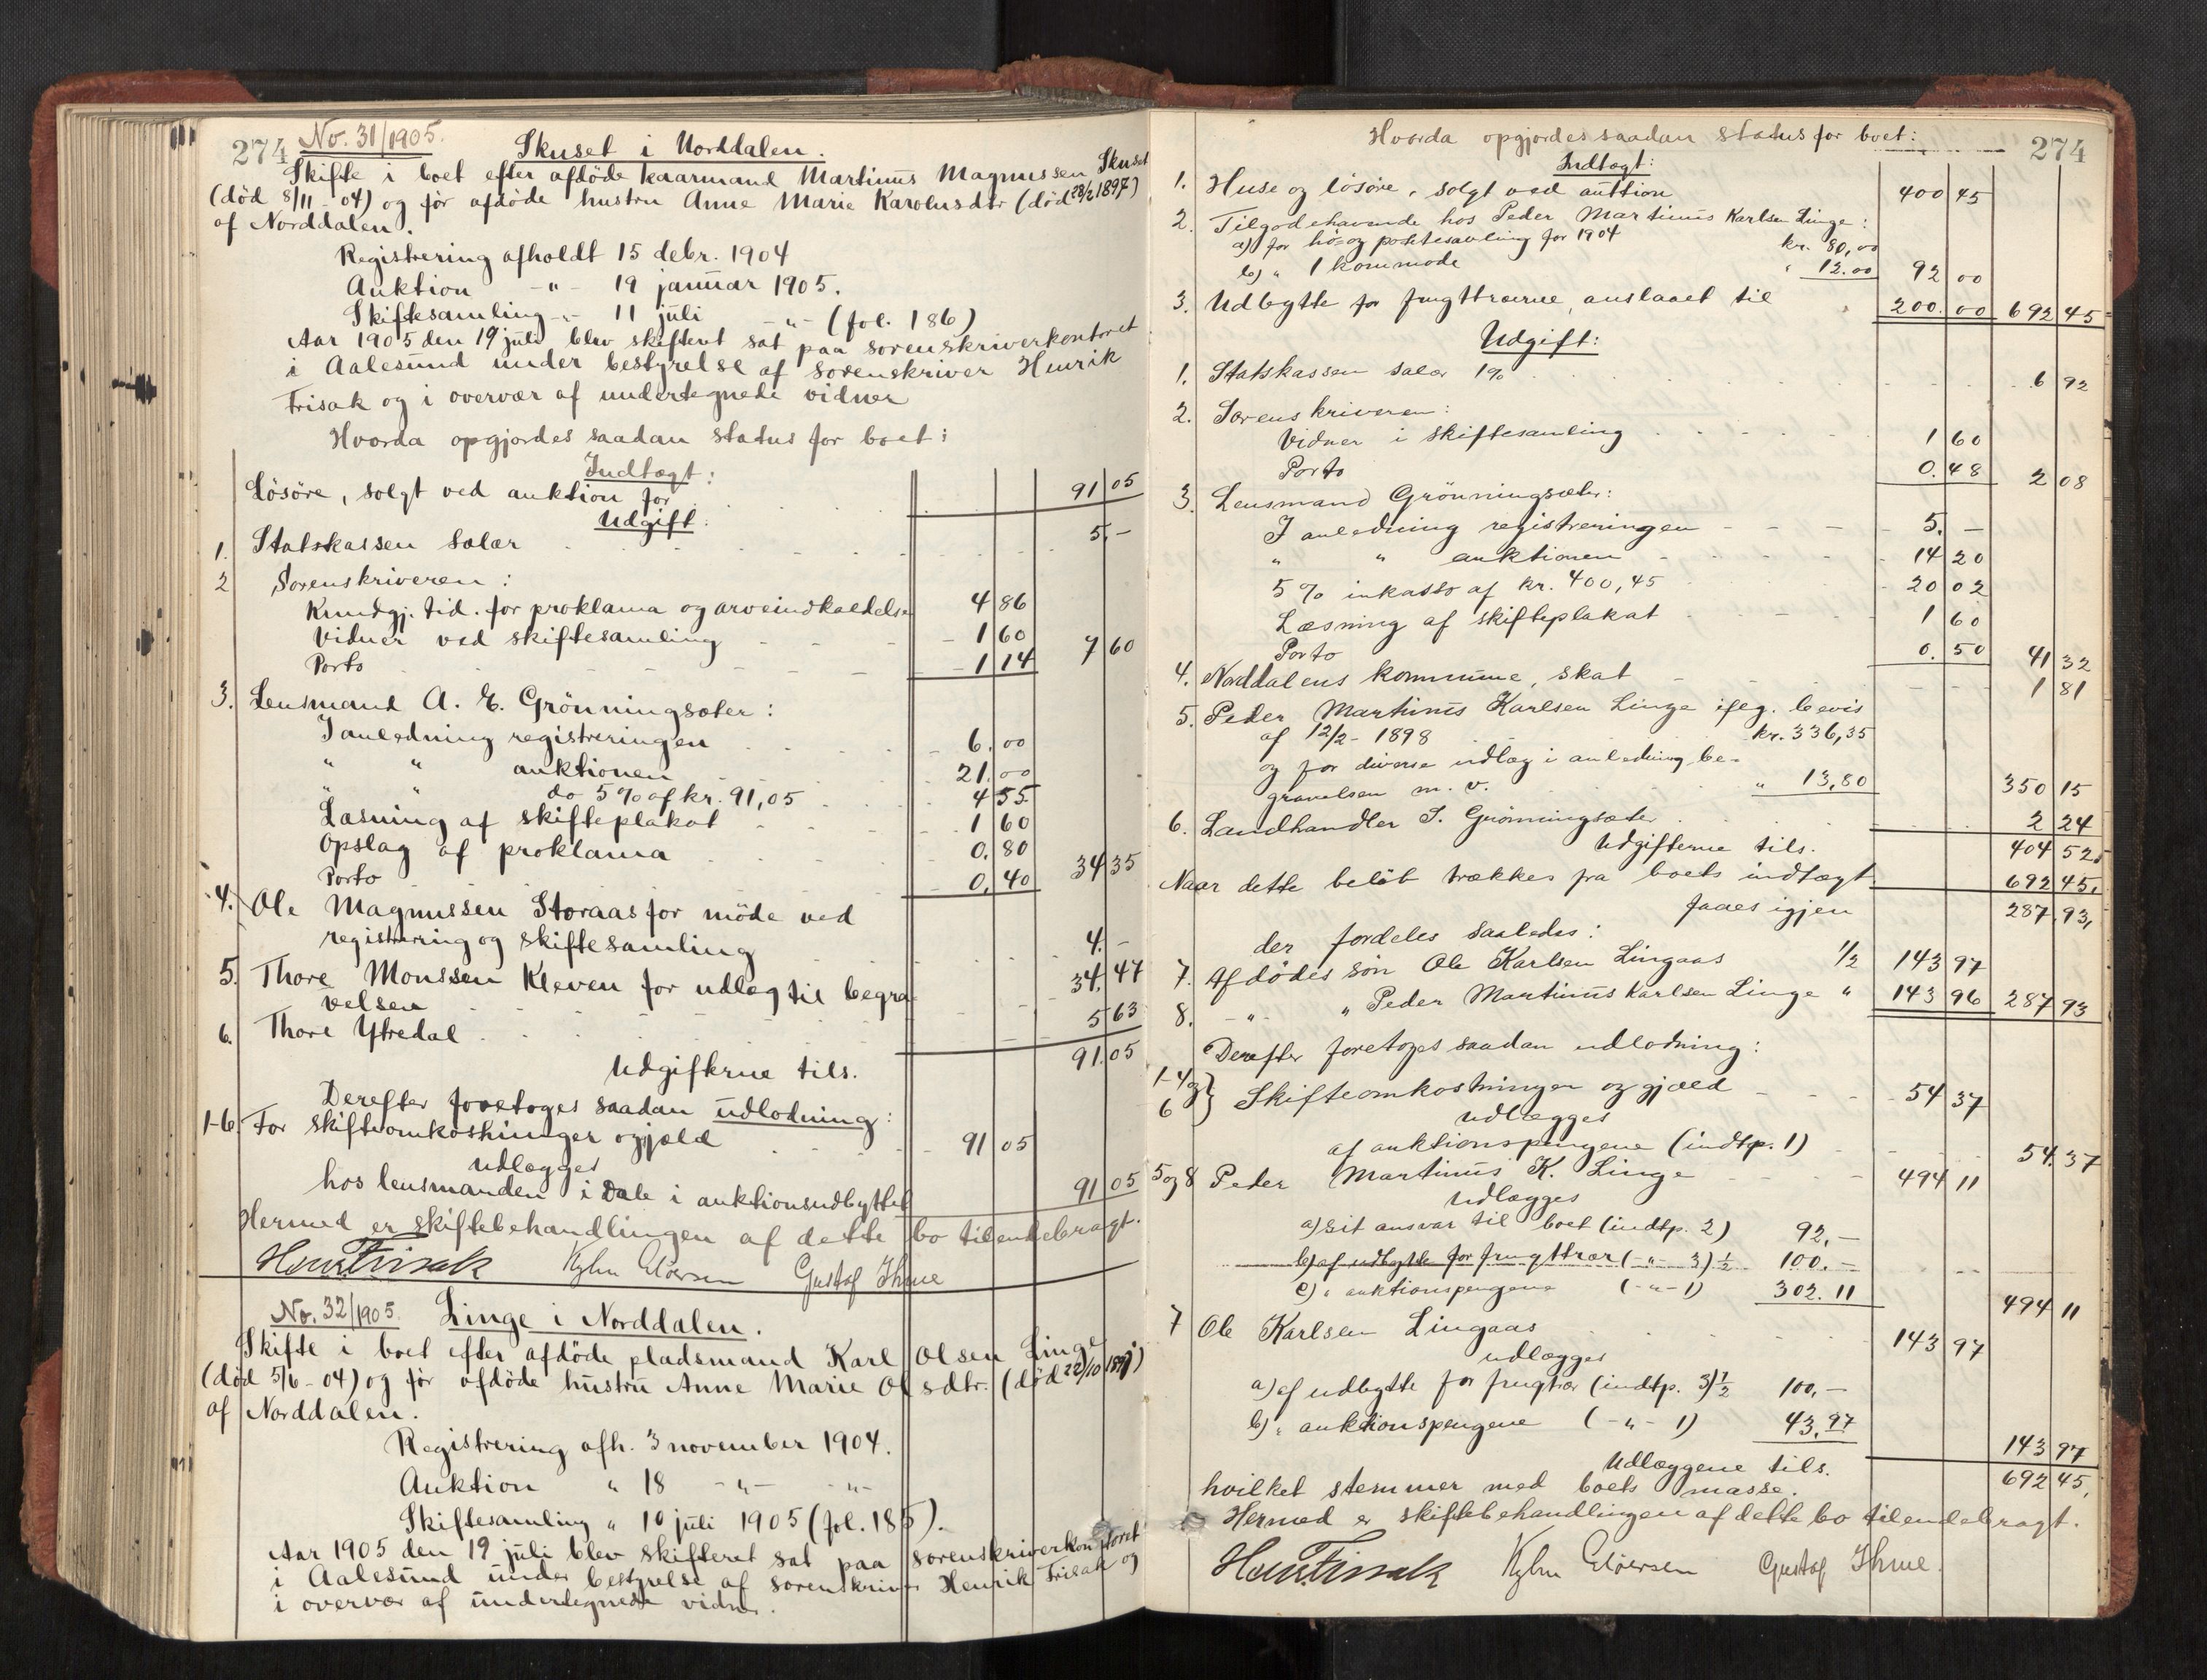 274 No. 31/1905.
Skuset i Norddalen.
Skifte i boet efter afdöde kaarmand Martinus Magnussen Skuset
(död 8/11 - 04) og för afdöde hustru Anne Marie Karolusdtr (död 28/2 1897)
af Norddalen.
Registrering afholdt 15 debr. 1904
Auktion -"- 19 januar 1905.
Skiftesamling -"- 11 juli -"- (fol. 186)
Aar 1905 den 19 juli blev skifteret sat paa sorenskriverkontoret
i Aalesund under bestyrelse af sorenskriver Henrik
Frisak og i overvær af undertegnede vidner
Hvorda opgjordes saadan status for boet:
Indtægt:
Lösöre, solgt ved auktion for 91 05
Udgift:
1. Statskassen salær 5. -
2 Sorenskriveren:
Kundgj. tid. for proklama og arveindkaldelse 4 86
Vidner ved skiftesamling 1 60
Porto 1 14 7 60
3. Lensmand A. E. Grönningsæter:
I anledning registreringen 6. 00
" " auktionen 21. 00
" " do 5% af kr. 91,05 4 55
Læsning af skifteplakat 1 60
Opslag af proklama 0. 80
Porto 0. 40 34 35
4. Ole Magnussen Storaas for möde ved
registrering og skiftesamling 4. -
5. Thore Monssen Kleven for udlæg til begra-
velsen 34. 47
6. Thore Ytredal 5 63
Udgifterne tils. 91. 05
Derefter foretoges saadan udlodning:
1-6. For skifteomkostninger og gjæld 91 05
udlægges
hos lensmanden i Dale i auktionsudbyttet 91 05
Hermed er skiftebehandlingen af dette bo tilendebragt.
Henr. Frisak Gustaf Ihme
No. 32/1905. Linge i Norddalen.
Skifte i boet efter afdöde pladsmand Karl Olsen Linge
(död 5/6 - 04) og för afdöde hustru Anne Marie Olsdtr. (död 22/10
af Norddalen.
Registrering afh. 3 november 1904.
Auktion " 18 -"- -"-
Skiftesamling " 10 juli 1905 (fol. 185).
Aar 1905 den 19 juli blev skifteret sat paa sorenskriverkontoret
i Aalesund under bestyrelse af sorenskriver Henrik Frisak og
i overvær af undertegnede vidner.
Hvorda opgjordes saadan status for boet: 274
Indtægt:
1. Huse og lösöre, solgt ved auktion 400 45
2. Tilgodehavende hos Peder Martinus Karlsen Linge:
a) for hö- og potetesavling for 1904 kr. 80,00
b) " 1 kommode " 12.00 92 00
3. Udbytte for frugttræerne, anslaaet til 200. 00 692 45
Udgift:
1. Statskassen salær 1% 6 92
2. Sorenskriveren:
Vidner i skiftesamling 1 60
Porto 0. 48 2 08
3. Lensmand Grönningsæter:
I anledning registreringen 5. -
" " auktionen 14 20
5% inkasso af kr. 400,45 20 02
Læsning af skifteplakat 1 60
Porto 0. 50 41 32
4. Norddalens kommune, skat 1 81
5. Peder Martinus Karlsen Linge iflg. bevis
af 12/2 - 1898 kr. 336,35
og for diverse udlæg i anledning be-
gravelsen m. v. " 13,80 350 15
6. Landhandler S. Grönningsæter 2 24
Udgifterne tils. 404 52
Naar dette belöb trækkes fra boets indtægt 692 45.
faaes igjen 287. 93,
der fordeles saaledes:
7. Afdödes sön Ole Karlsen Lingaas 1/2 143 97
8. -"- " Peder Martinus Karlsen Linge " 143 96 287 93
Derefter foretoges saadan udlodning:
1-4 og 6 } Skifteomkostninger og gjæld 54 37
udlægges
af auktionspengene (indtp. 1) 54. 37
5 og 8 Peder Martinus K. Linge 494 11
udlægges
a) sit ansvar til boet (indtp. 2) 92. -
b) af udbytte for frugttrær (-"- 3) 1/2 100. -
c) " auktionspengene (-"- 1) 302. 11
494 11
7 Ole Karlsen Lingaas 143 97
udlægges
a) af udbytte for frugttrær (indtp. 3) 1/2 100, -
b) " auktionspengene (-"- 1) 43. 97
143 97
Udlæggene tils. 692 45,
hvilket stemmer med boets masse.
Hermed er skiftebehandlingen af dette bo tilendebragt.
Henr. Frisak Gustaf Ihme.